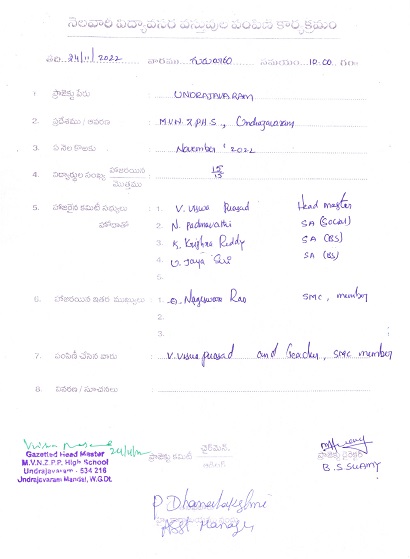 నెలవారీ విద్యావసర వస్తువుల పంపిణీ కార్యక్రమం
తేది 24/11/2022 వారము గురువారం సమయం 10:00 గం॥
1. ప్రాజెక్టు పేరు UNDRAJAVARAM
2. ప్రదేశము / ఆవరణ M.V.N.Z.P.H.S., Undrajavaram
3. ఏ నెల కొరకు November ' 2022
4. విద్యార్థుల సంఖ్య హాజరయిన 15
మొత్తము 15
5. హాజరైన కమిటీ సభ్యులు 1. V. Viswa Prasad Head master
హోదాతో 2. N. Padmavathi SA (Social)
3. K. Krishna Reddy SA (BS)
4. U. Jaya Sri SA (BS)
6. హాజరయిన ఇతర ముఖ్యులు 1. O. Nageswara Rao SMC, member
2.
3.
7. పంపిణీ చేసిన వారు V. Viswa prasad and Teacher, SMC member
8. వివరణ / సూచనలు
24/11/22
Gazetted Head Master
M.V.N.Z.P.P. High School
Undrajavaram - 534 216
Undrajavaram Mandal, W.G.Dt.
ప్రాజెక్టు కమిటీ ఛైర్మెన్
ప్రాజెక్టు డైరెక్టర్
B.S. SWAMY
P Dhanalakshmi
Asst Manager